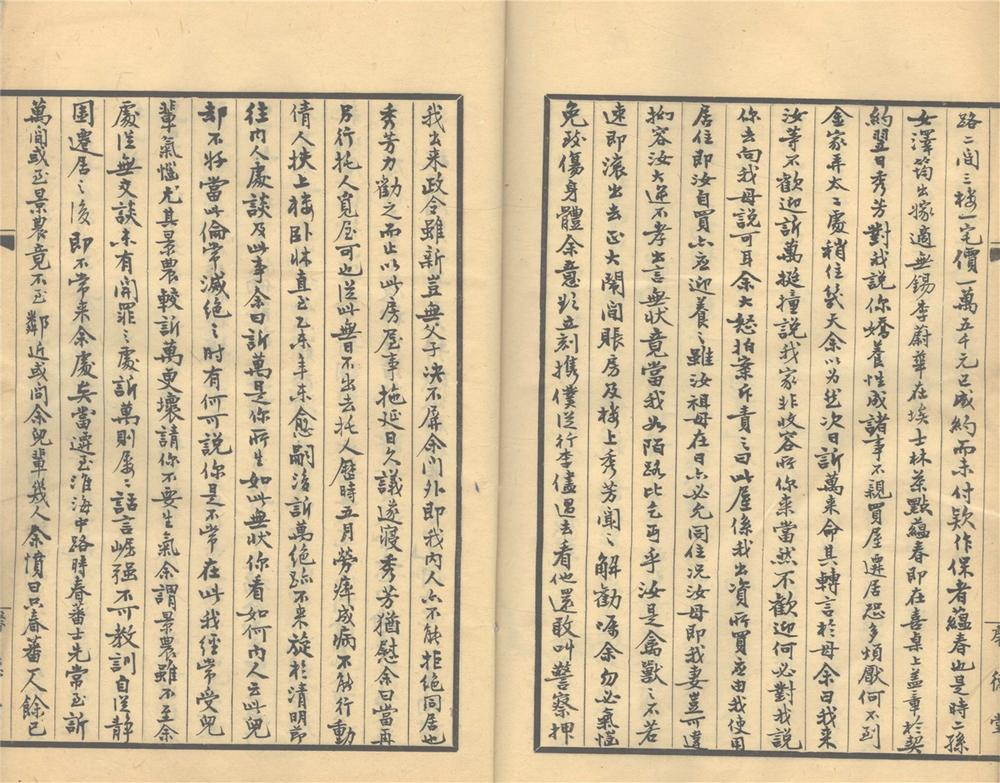 路二间三楼一宅價一萬五千元已成約而未付欵作保者藴春也是時二孫
女澤筠出嫁適無錫李蔚華在埃士林茶點藴春即在喜桌上盖章於契
約翌日秀芳對我説你嬌養性成諸事不親買屋遷居恐多煩厭何不到
金家弄太二處稍住幾天余以为然次日訢萬來命其轉言於母余曰我来
汝等不歡迎訢萬挺撞説我家非收容所你来當然不歡迎何必對我説
你去向我母説可耳余大怒拍案斥責之曰此屋係我出資所買应由我使用
居住即汝自買亦应迎養之雖汝祖母在日亦必允同住况汝母即我妻豈可違
拗容汝大逆不孝出言無狀竟當我如陌路比乞丐乎汝是禽獸之不若
速即滚出去正大鬧間賬房及楼上秀芳聞之解勸嘱余勿必氣惱
免致傷身體余意欲立刻携僕從行李儘過去看他還敢叫警察押
我出来政令雖新豈無父子决不屏余门外即我内人亦不能拒绝同居也
秀芳力勸之而止以此房屋事拖延日久議遂寝秀芳猶慰余曰當再
另行托人覓屋可也從此無日不出去托人歷時五月勞瘁成病不能行動
倩人扶上楼卧牀直至乙未年未愈嗣後訢萬绝跡不来旋於清明節
往内人處談及此事余曰訢萬是你所生如此無狀你看如何内人云此兒
却不好當此倫常滅绝之时有何可説你是不常在此我經常受兒
輩氣惱尤其景農較訢萬更壞請你不要生氣余謂景農雖不至余
處從無交談未有開罪之處訢萬則屡二話言崛强不可教訓自從静
园遷居之後即不常来余處矣當遷至淮海中路時春蕃士先常至訢
萬间或至景農竟不至鄰近或问余兒輩幾人余憤曰只春蕃一人餘已